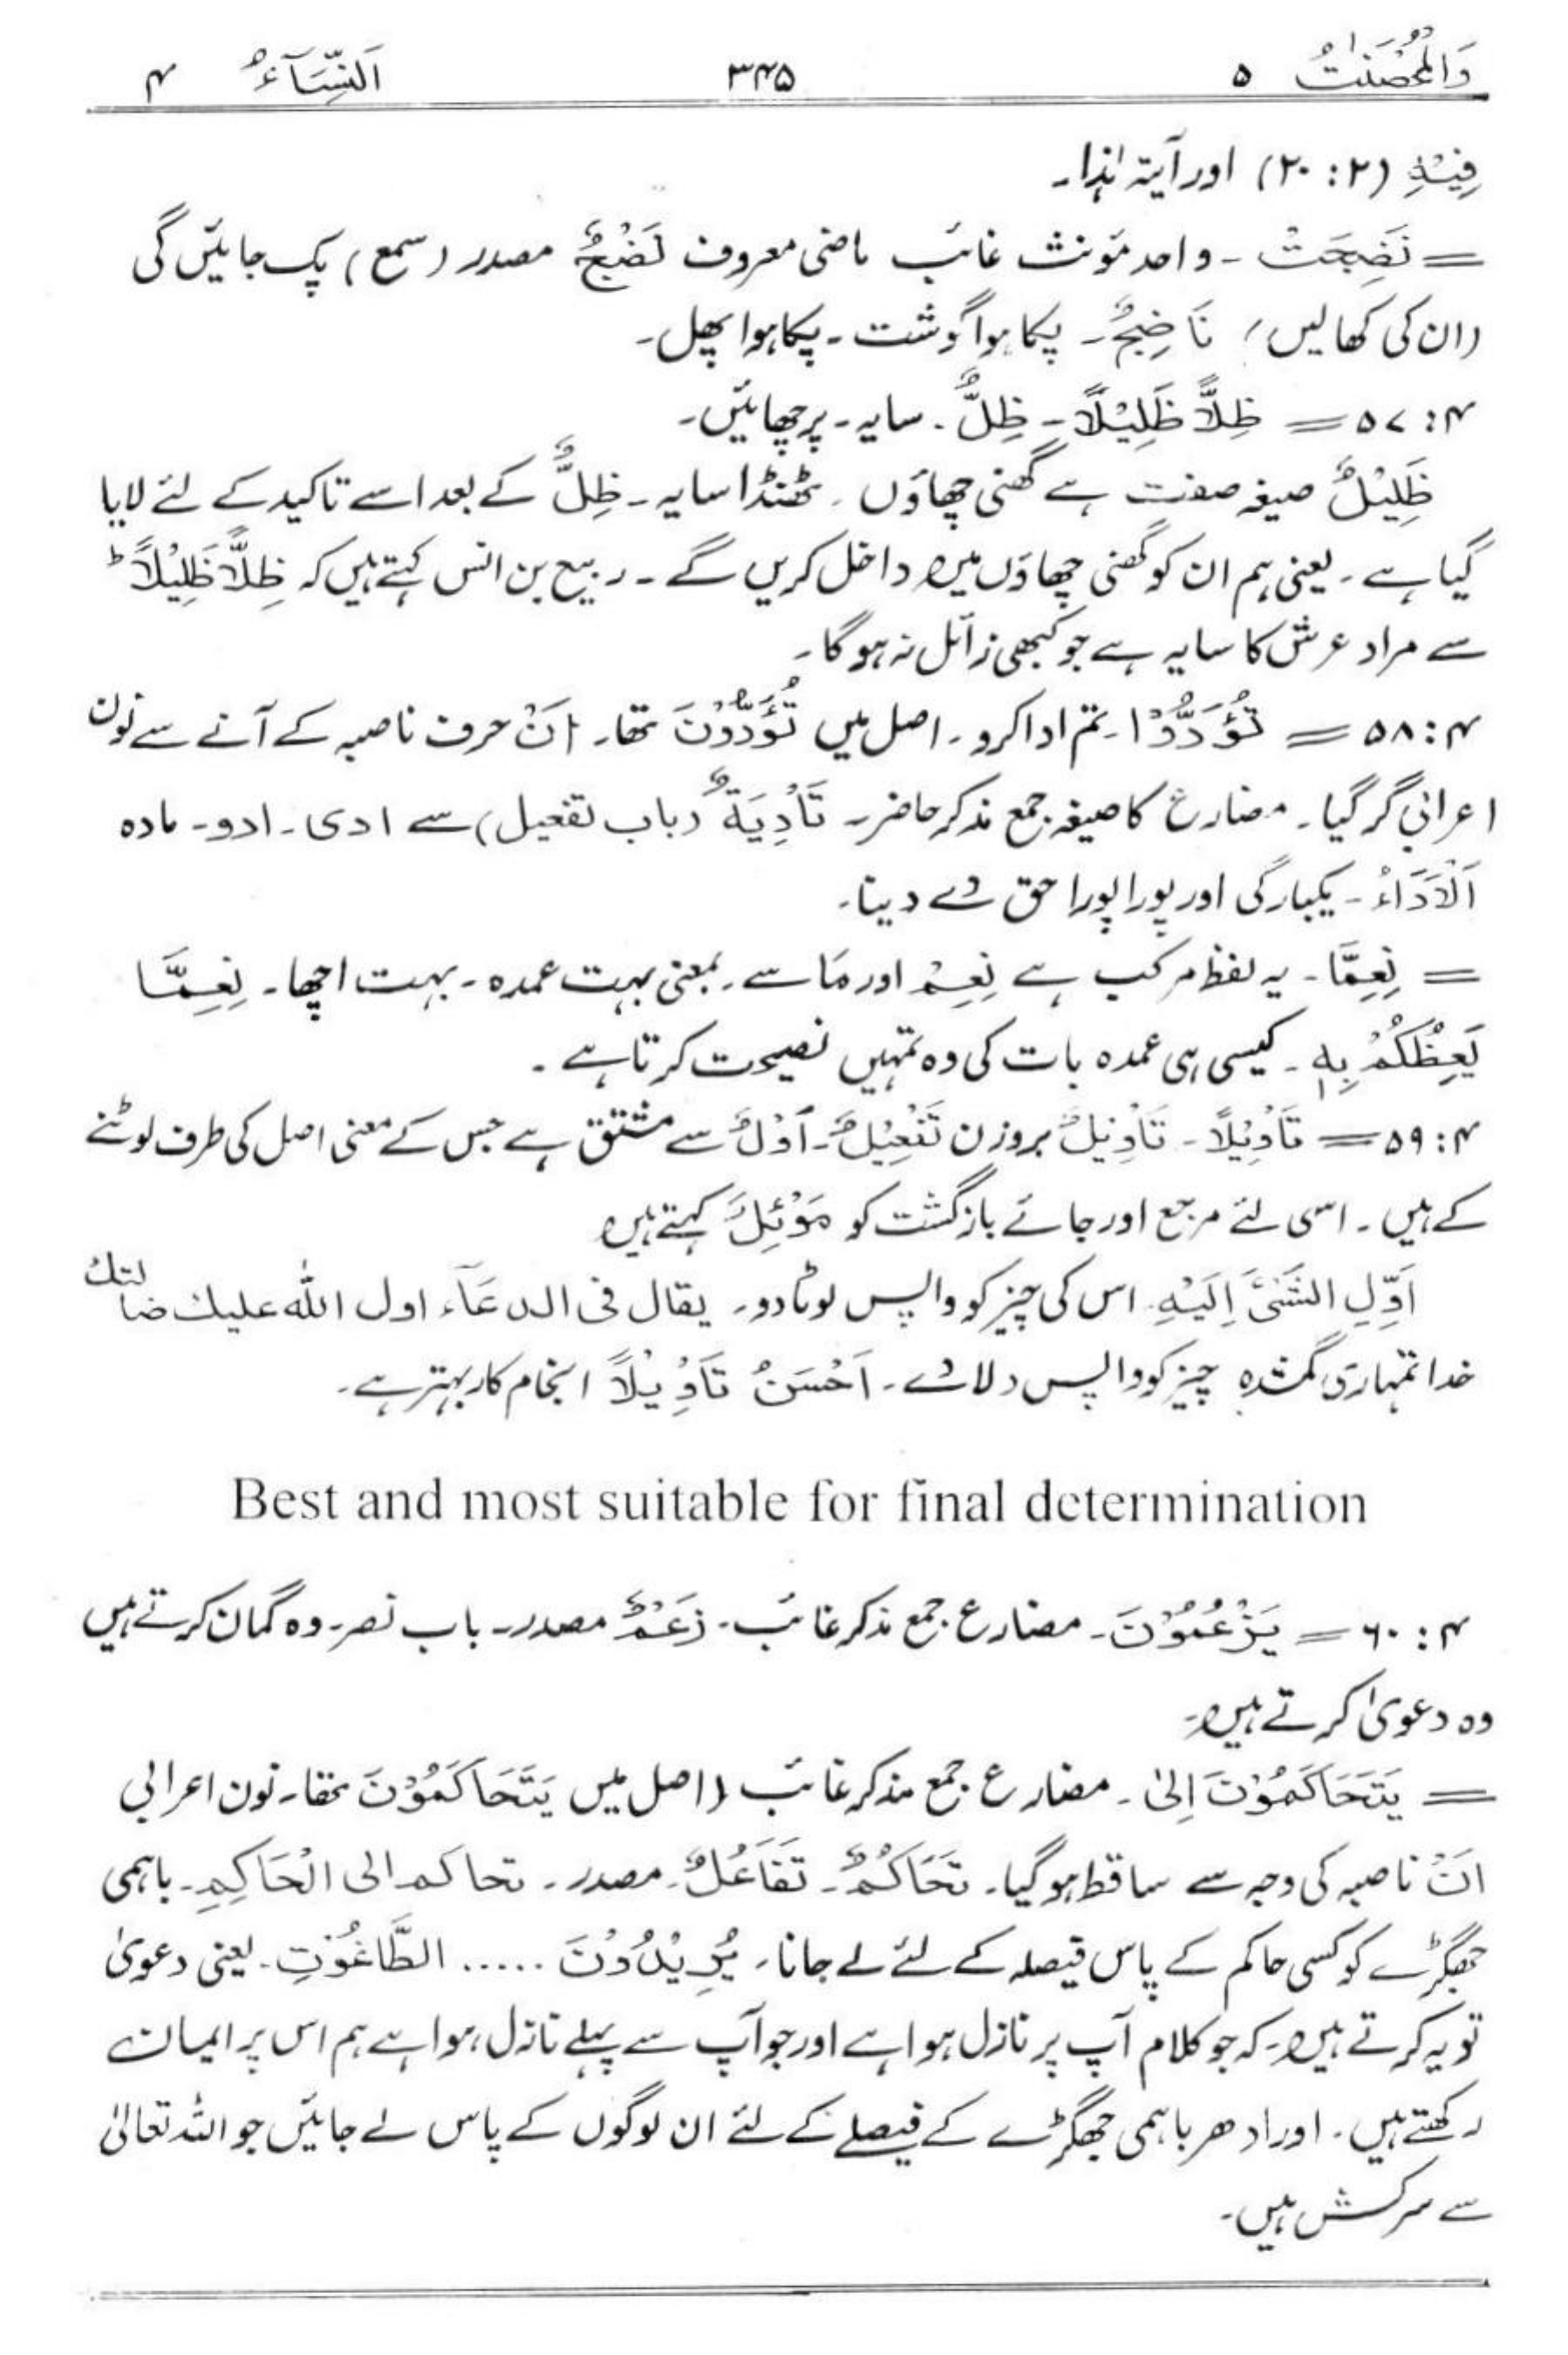 وَالْمُحْصَنٰتُ ۵ ۳۴۵ اَلنِّسَآءُ ۴
فِیْہِ (۲: ۲۰) اور آیۃ ہٰذا۔
= نَضِجَتْ ۔ واحد مؤنث غائب ماضی معروف نَضْجٌ مصدر (سمع) پک جائیں گی
(ان کی کھالیں) نَاضِجٌ۔ پکا ہوا گوشت ۔ پکا ہوا پھل۔
۴: ۵۷ = ظِلًّا ظَلِیْلًا۔ ظِلٌّ ۔ سایہ ۔ پرچھائیں۔
ظَلِیْلٌ صیغہ صفت ہے گھنی چھاؤں ۔ ٹھنڈا سایہ ۔ ظِلٌّ کے بعد اسے تاکید کے لئے لایا
گیا ہے ۔ یعنی ہم ان کو گھنی چھاؤں میں داخل کریں گے ۔ ربیع بن انس کہتے ہیں کہ ظِلًّا ظَلِیْلًا ط
سے مراد عرش کا سایہ ہے جو کبھی زائل نہ ہوگا ۔
۴: ۵۸ = تُؤَدُّوْا ۔ تم ادا کرو ۔ اصل میں تُؤَدُّوْنَ تھا۔ اَنْ حرف ناصبہ کے آنے سے نون
اعرابی گر گیا ۔ مضارع کا صیغہ جمع مذکر حاضر ۔ تَأْدِیَۃٌ (باب تفعیل) سے ادی ۔ ادو ۔ مادہ
اَلْاَدَاءُ ۔ یکبارگی اور پورا پورا حق دے دینا۔
= نِعِمَّا ۔ یہ لفظ مرکب ہے نِعِمْ اور مَا سے ۔ بمعنی بہت عمدہ ۔ بہت اچھا ۔ نِعِمَّا
یَعِظُکُمْ بِہٖ ۔ کیسی ہی عمدہ بات کی وہ تمہیں نصیحت کرتا ہے ۔
۴: ۵۹ = تَأْوِیْلًا ۔ تَأْوِیْلٌ بروزن تَفْعِیْلٌ ۔ اَوْلٌ سے مشتق ہے جس کے معنی اصل کی طرف لوٹنے
کے ہیں ۔ اسی لئے مرجع اور جائے بازگشت کو مَوْئِلٌ کہتے ہیں
اَوِّلِ الشَّیْئَ اِلَیْہِ۔ اس کی چیز کو واپس لوٹا دو۔ یقال فی الدعَآء اول اللہ علیک ضالتک
خدا تمہاری گمشدہ چیز کو واپس دلائے ۔ اَحْسَنُ تَأْوِیْلًا انجام کار بہتر ہے ۔
Best and most suitable for final determination
۴: ۶۰ = یَزْعُمُوْنَ ۔ مضارع جمع مذکر غائب ۔ زَعْمٌ مصدر ۔ باب نصر ۔ وہ گمان کرتے ہیں
وہ دعویٰ کرتے ہیں ۔
= یَتَحَاکَمُوْنَ اِلیٰ ۔ مضارع جمع مذکر غائب (اصل میں یَتَحَاکَمُوْنَ تھا۔ نون اعرابی
اَنْ ناصبہ کی وجہ سے ساقط ہو گیا ۔ تَحَاکُمٌ ۔ تَفَاعُلٌ ۔ مصدر ۔ تحاکم الی الْحَاکِمِ ۔ باہمی
جھگڑے کو کسی حاکم کے پاس فیصلہ کے لئے لے جانا۔ یُرِیْدُوْنَ ..... الطَّاغُوْتِ ۔ یعنی دعویٰ
تو یہ کرتے ہیں ۔ کہ جو کلام آپ پر نازل ہوا ہے اور جو آپ سے پہلے نازل ہوا ہے ہم اس پر ایمان
رکھتے ہیں ۔ اور ادھر باہمی جھگڑے کے فیصلے کے لئے ان لوگوں کے پاس لے جائیں جو اللہ تعالیٰ
سے سرکش ہیں ۔